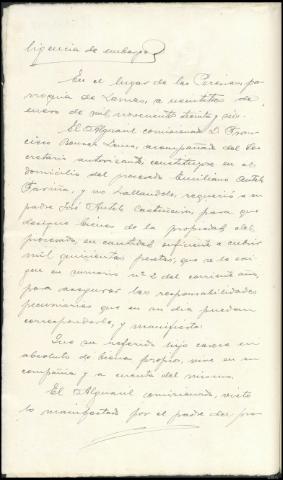 ligencia de embargo
En el lugar de las Pereiras, pa-
rroquia de Lamas, a veintitres de
enero de mil novecientos treinta y seis.
El Alguacil comisionado D. Fran-
cisco Bouzas Lama, acompañado del Se-
cretario autorizante, constituyose en el
domicilio del procesado Emiliano
Fariña, y no hallandolo, requirió a su
padre José para que
designe bienes de la propiedad del
procesado, en cantidad suficiente a cubrir
mil quinientas pesetas, que se le exi-
gen en sumario nº 2 del corriente año,
para asegurar las responsabilidades
pecuniarias que en su dia puedan
corresponderle, y manifiesta:
Que su referido hijo carece en
absoluto de bienes propios, vive en su
compañia y a cuenta del mismo.
El Alguacil comisionado, visto
lo manifestado por el padre del pro-